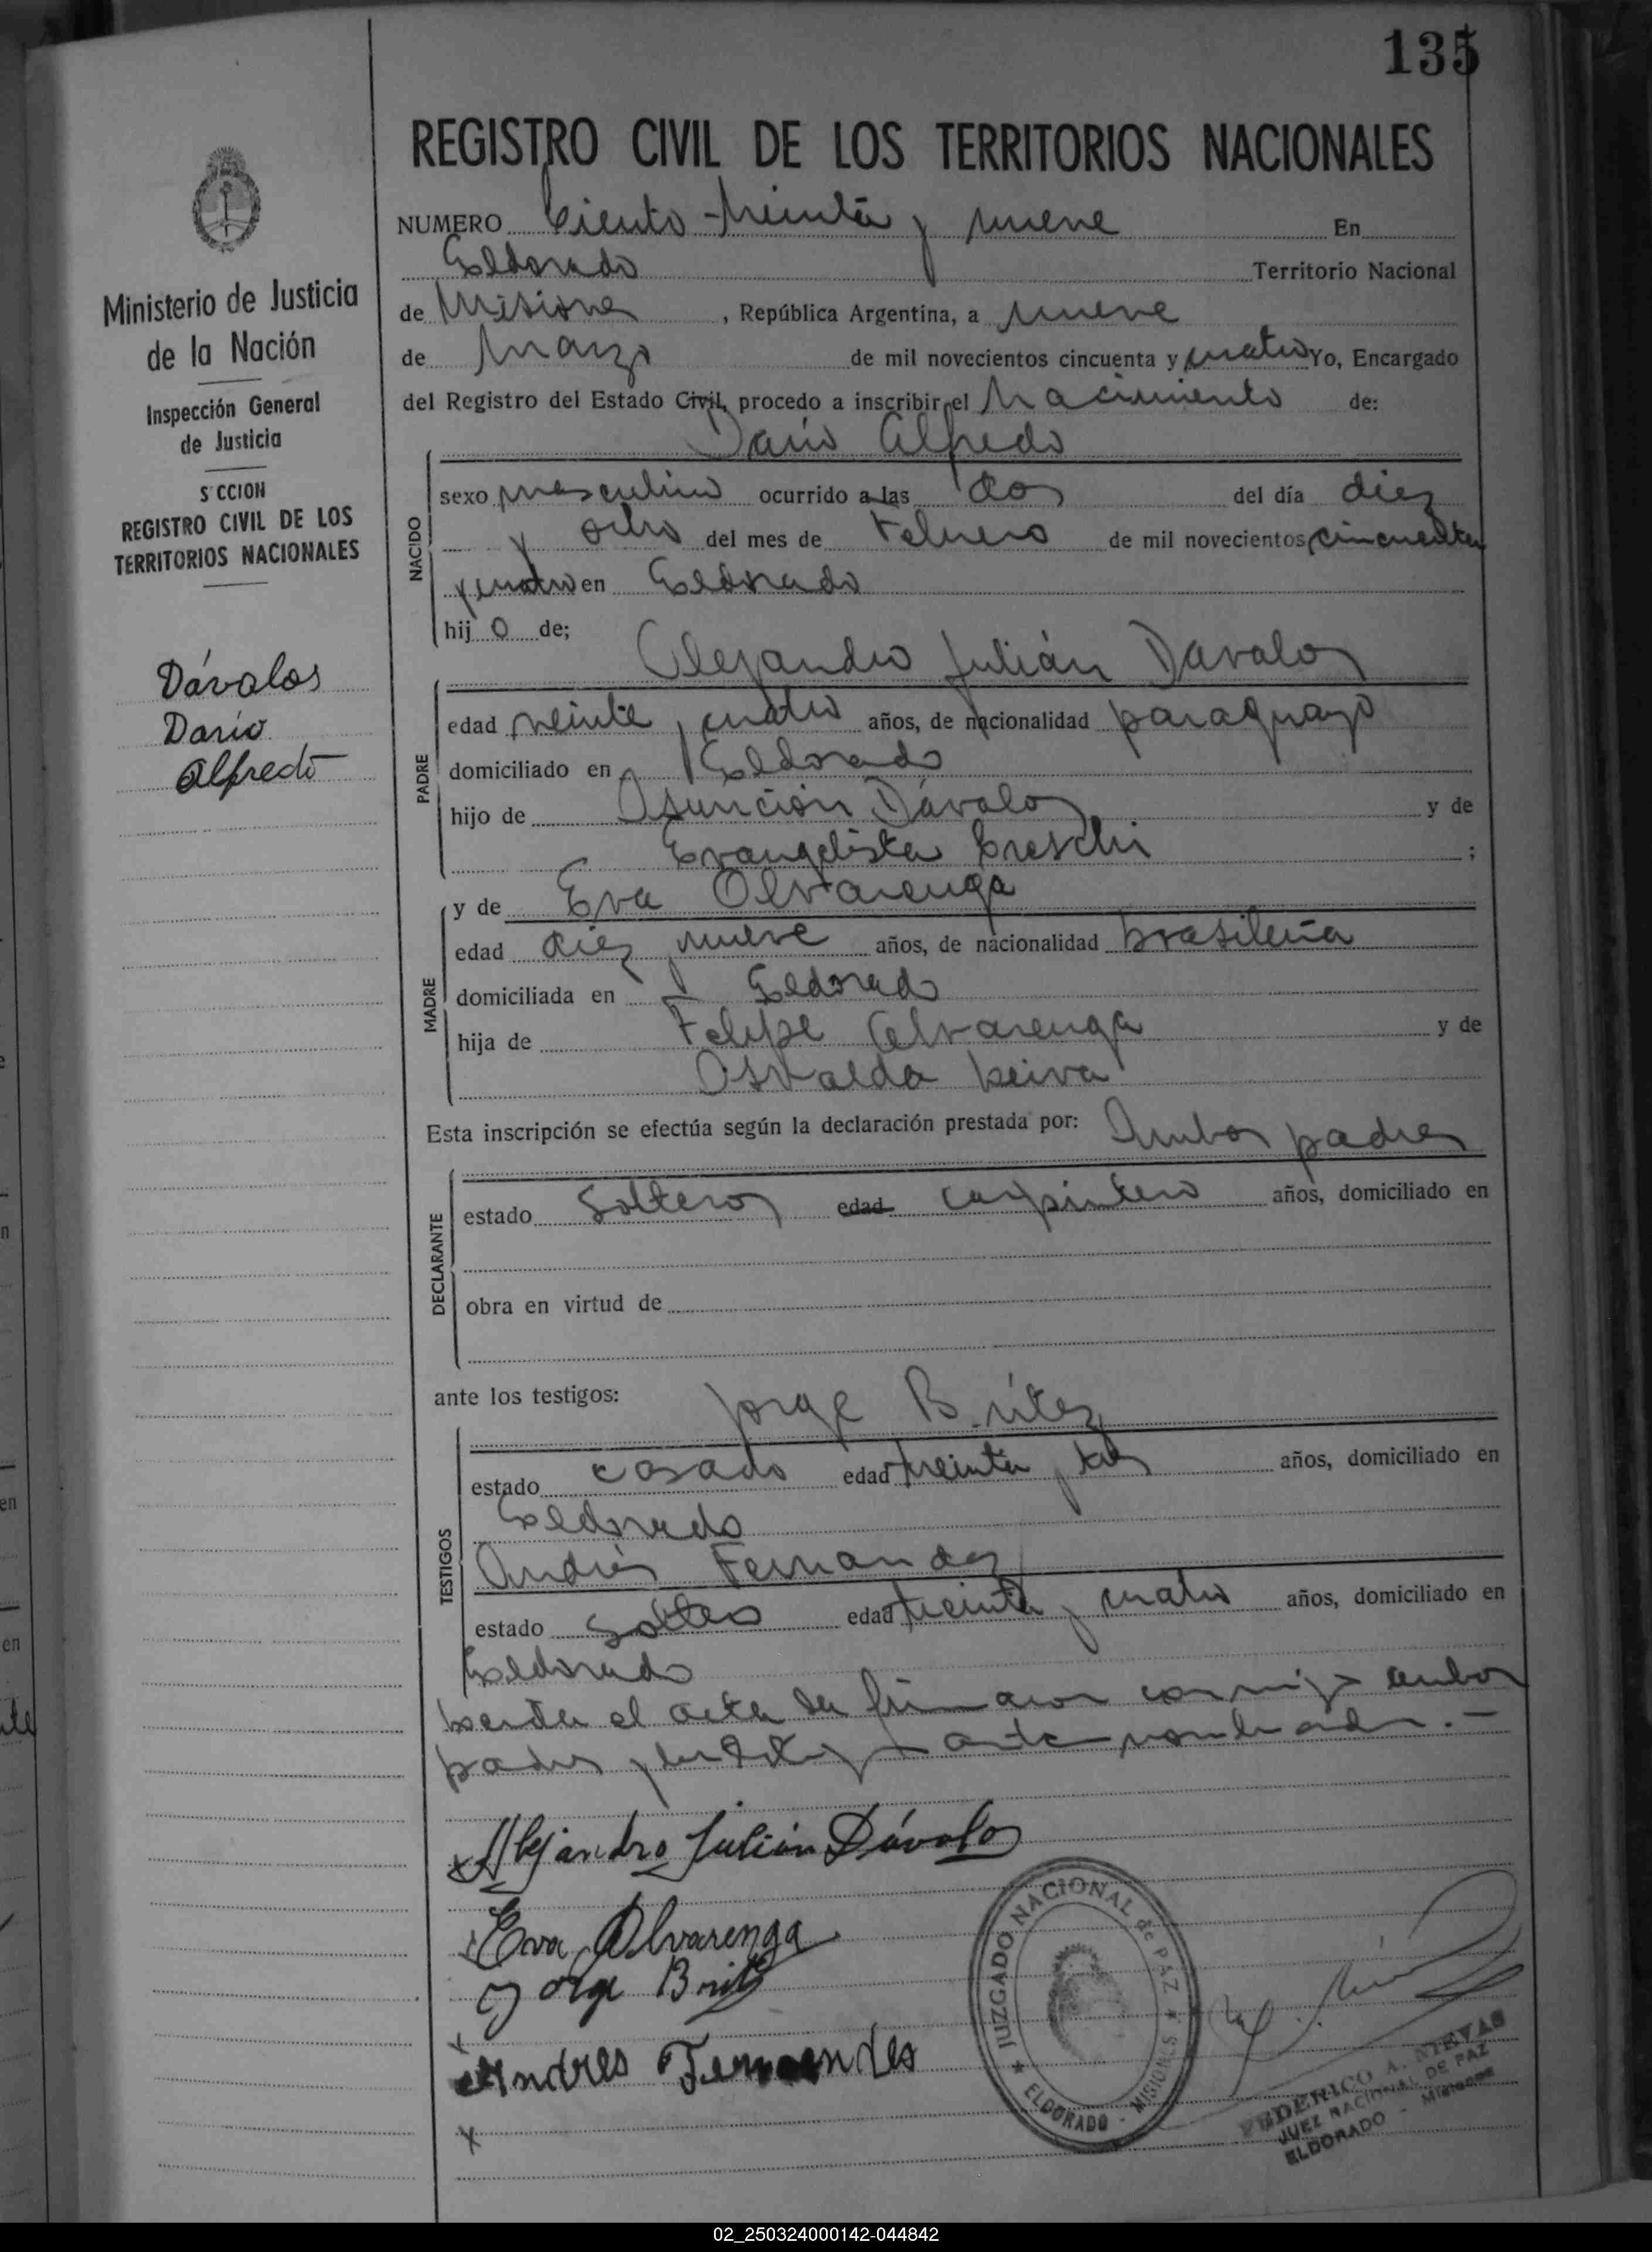 135
REGISTRO CIVIL DE LOS TERRITORIOS NACIONALES
NUMERO Ciento treinta y nueve En
Eldorado Territorio Nacional
de Misiones, República Argentina, a nueve
de Marzo de mil novecientos cincuenta y cuatro Yo, Encargado
del Registro del Estado Civil, procedo a inscribir el Nacimiento de:
Darío Alfredo
NACIDO
sexo masculino ocurrido a las dos del día diez
y ocho del mes de Febrero de mil novecientos cincuenta
y cuatro en Eldorado
hij o de;
Alejandro Julián Dávalos
PADRE
edad veinte y cuatro años, de nacionalidad paraguayo
domiciliado en Eldorado
hijo de Asunción Dávalos y de
Evangelista ;
y de Eva Alvarenga
MADRE
edad diez y nueve años, de nacionalidad brasileña
domiciliada en Eldorado
hija de Felipe Alvarenga y de
Osvalda Leiva
Esta inscripción se efectúa según la declaración prestada por: Ambos padres
DECLARANTE
estado Solteros edad carpintero años, domiciliado en
obra en virtud de
ante los testigos:
Jorge Britez
TESTIGOS
estado casado edad treinta y tres años, domiciliado en
Eldorado
Andrés Fernandez
estado Soltero edad treinta y cuatro años, domiciliado en
Eldorado
Leida el acta la firmaron conmigo ambos
padres y los testigos ante nombrados.-
Alejandro Julián Dávalos
Eva Alvarenga
Jorge Britez
Andres Fernandes
JUZGADO NACIONAL de PAZ
★ ELDORADO - MISIONES ★
FEDERICO A. NIEVAS
JUEZ NACIONAL DE PAZ
ELDORADO - Misiones
Ministerio de Justicia
de la Nación
Inspección General
de Justicia
S CCION
REGISTRO CIVIL DE LOS
TERRITORIOS NACIONALES
Dávalos
Darío
Alfredo
02_250324000142-044842